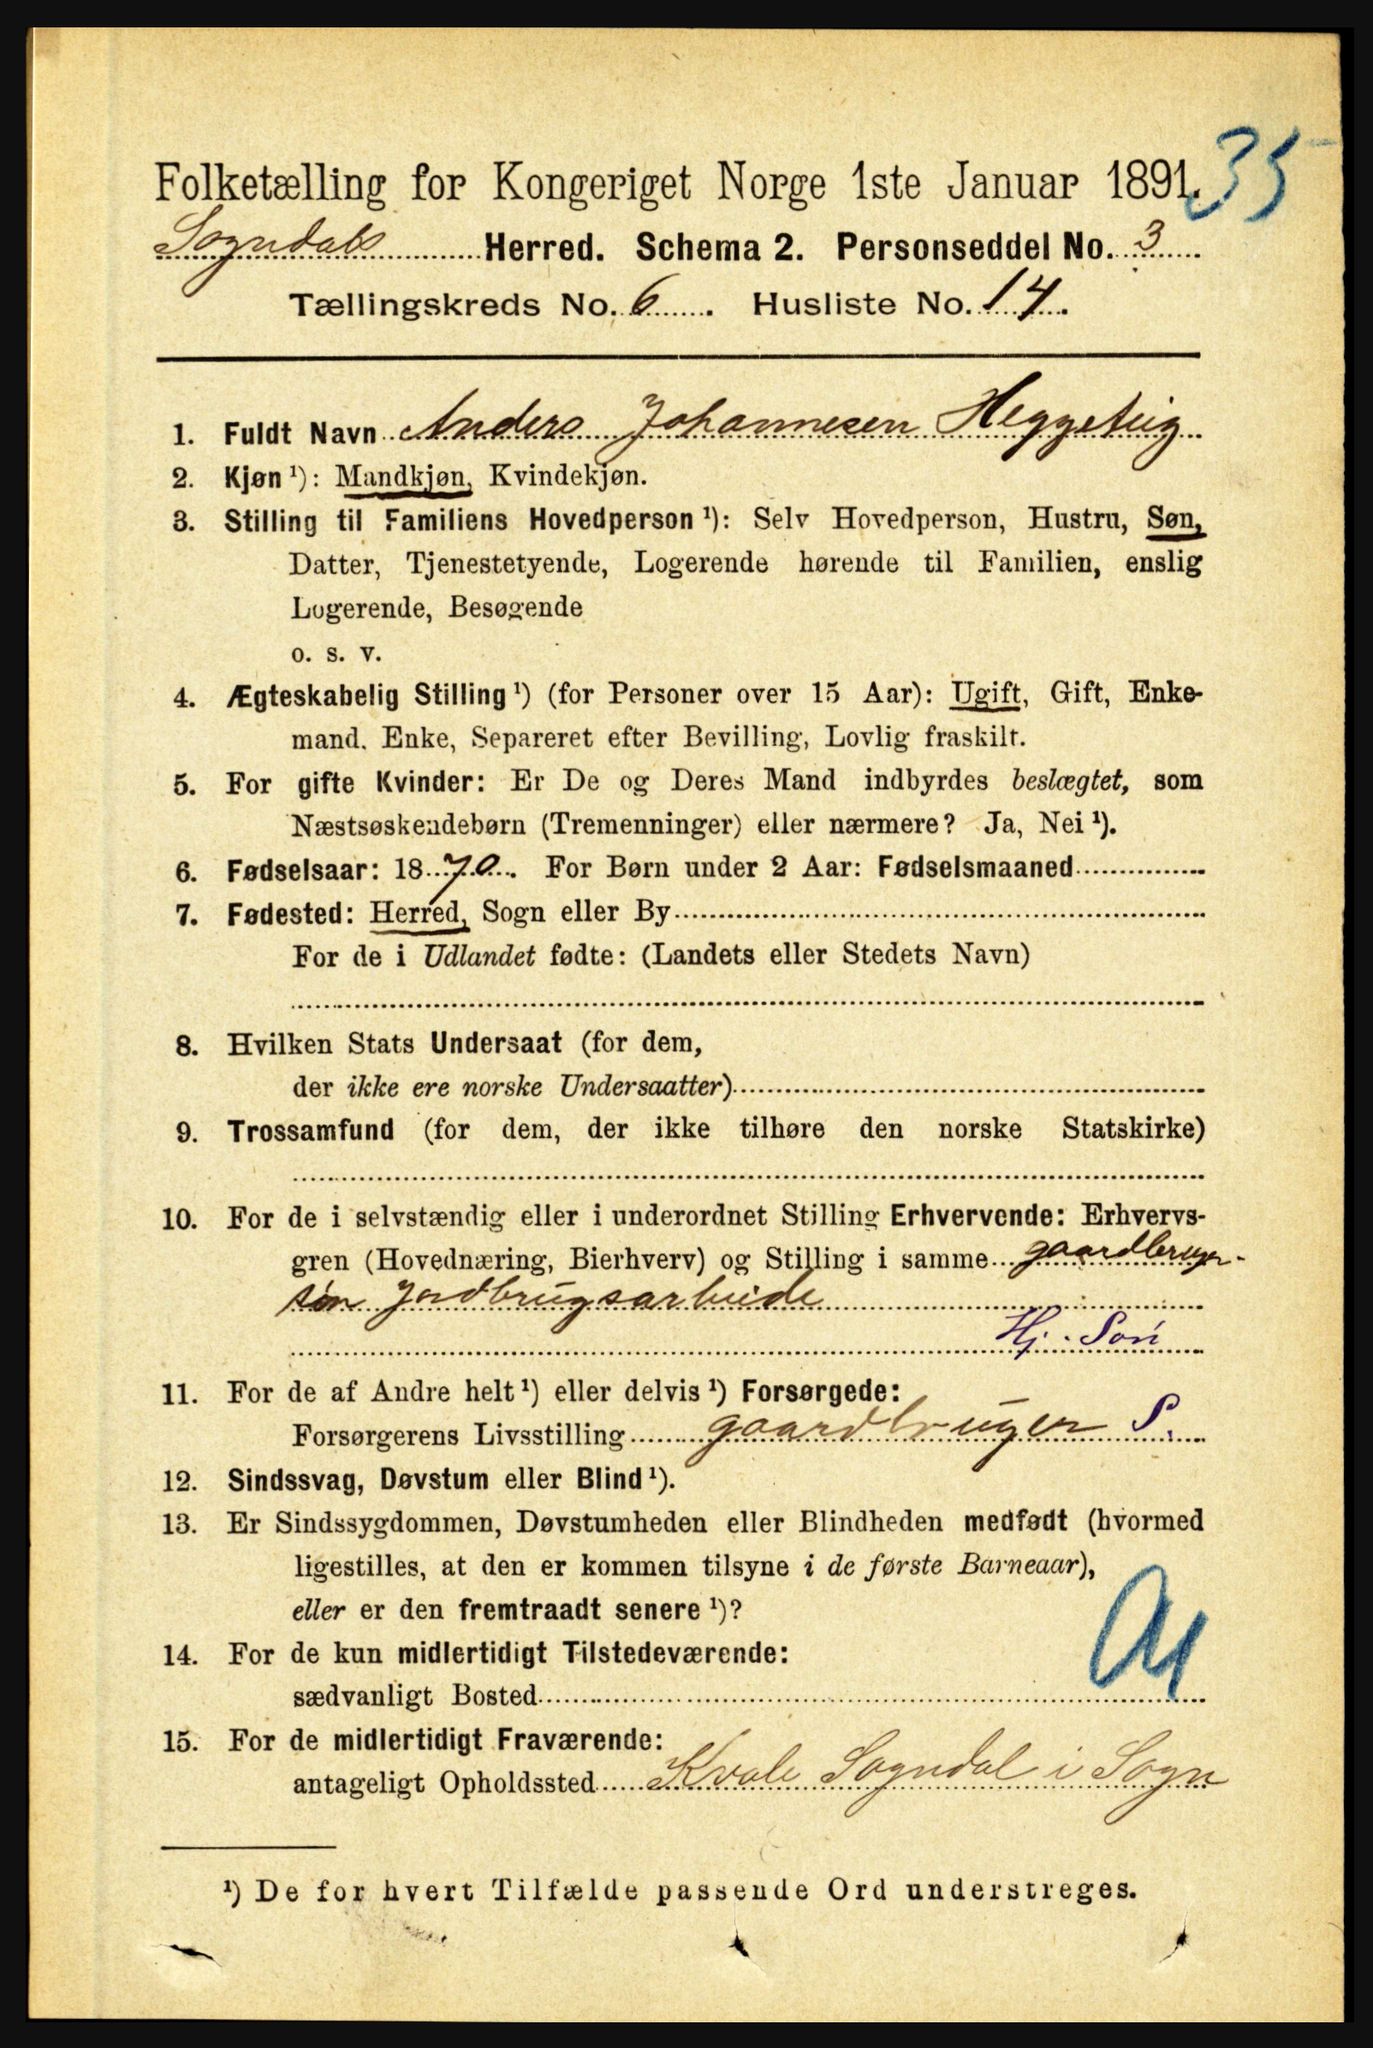 35
Folketælling for Kongeriget Norge 1ste Januar 1891.
Sogndals Herred. Schema 2. Personseddel No. 3
Tællingskreds No. 6. Husliste No. 14.
1. Fuldt Navn Anders Johannesen Heggeteig
2. Kjøn ¹): Mandkjøn, Kvindekjøn.
3. Stilling til Familiens Hovedperson ¹): Selv Hovedperson, Hustru, Søn,
Datter, Tjenestetyende, Logerende hørende til Familien, enslig
Logerende, Besøgende
o. s. v.
4. Ægteskabelig Stilling ¹) (for Personer over 15 Aar): Ugift, Gift, Enke-
mand, Enke, Separeret efter Bevilling, Lovlig fraskilt.
5. For gifte Kvinder: Er De og Deres Mand indbyrdes beslægtet, som
Næstsøskendebørn (Tremenninger) eller nærmere? Ja, Nei ¹).
6. Fødselsaar: 1870. For Børn under 2 Aar: Fødselsmaaned
7. Fødested: Herred, Sogn eller By
For de i Udlandet fødte: (Landets eller Stedets Navn)
8. Hvilken Stats Undersaat (for dem,
der ikke ere norske Undersaatter)
9. Trossamfund (for dem, der ikke tilhøre den norske Statskirke)
10. For de i selvstændig eller i underordnet Stilling Erhvervende: Erhvervs-
gren (Hovednæring, Bierhverv) og Stilling i samme gaardbruger-
søn Jordbrugsarbeide
Hj. Søn
11. For de af Andre helt ¹) eller delvis ¹) Forsørgede:
Forsørgerens Livsstilling gaardbruger S.
12. Sindssvag, Døvstum eller Blind ¹).
13. Er Sindssygdommen, Døvstumheden eller Blindheden medfødt (hvormed
ligestilles, at den er kommen tilsyne i de første Barneaar),
eller er den fremtraadt senere ¹)?
14. For de kun midlertidigt Tilstedeværende:
sædvanligt Bosted
15. For de midlertidigt Fraværende:
antageligt Opholdssted Kvale Sogndal i Sogn
¹) De for hvert Tilfælde passende Ord understreges.